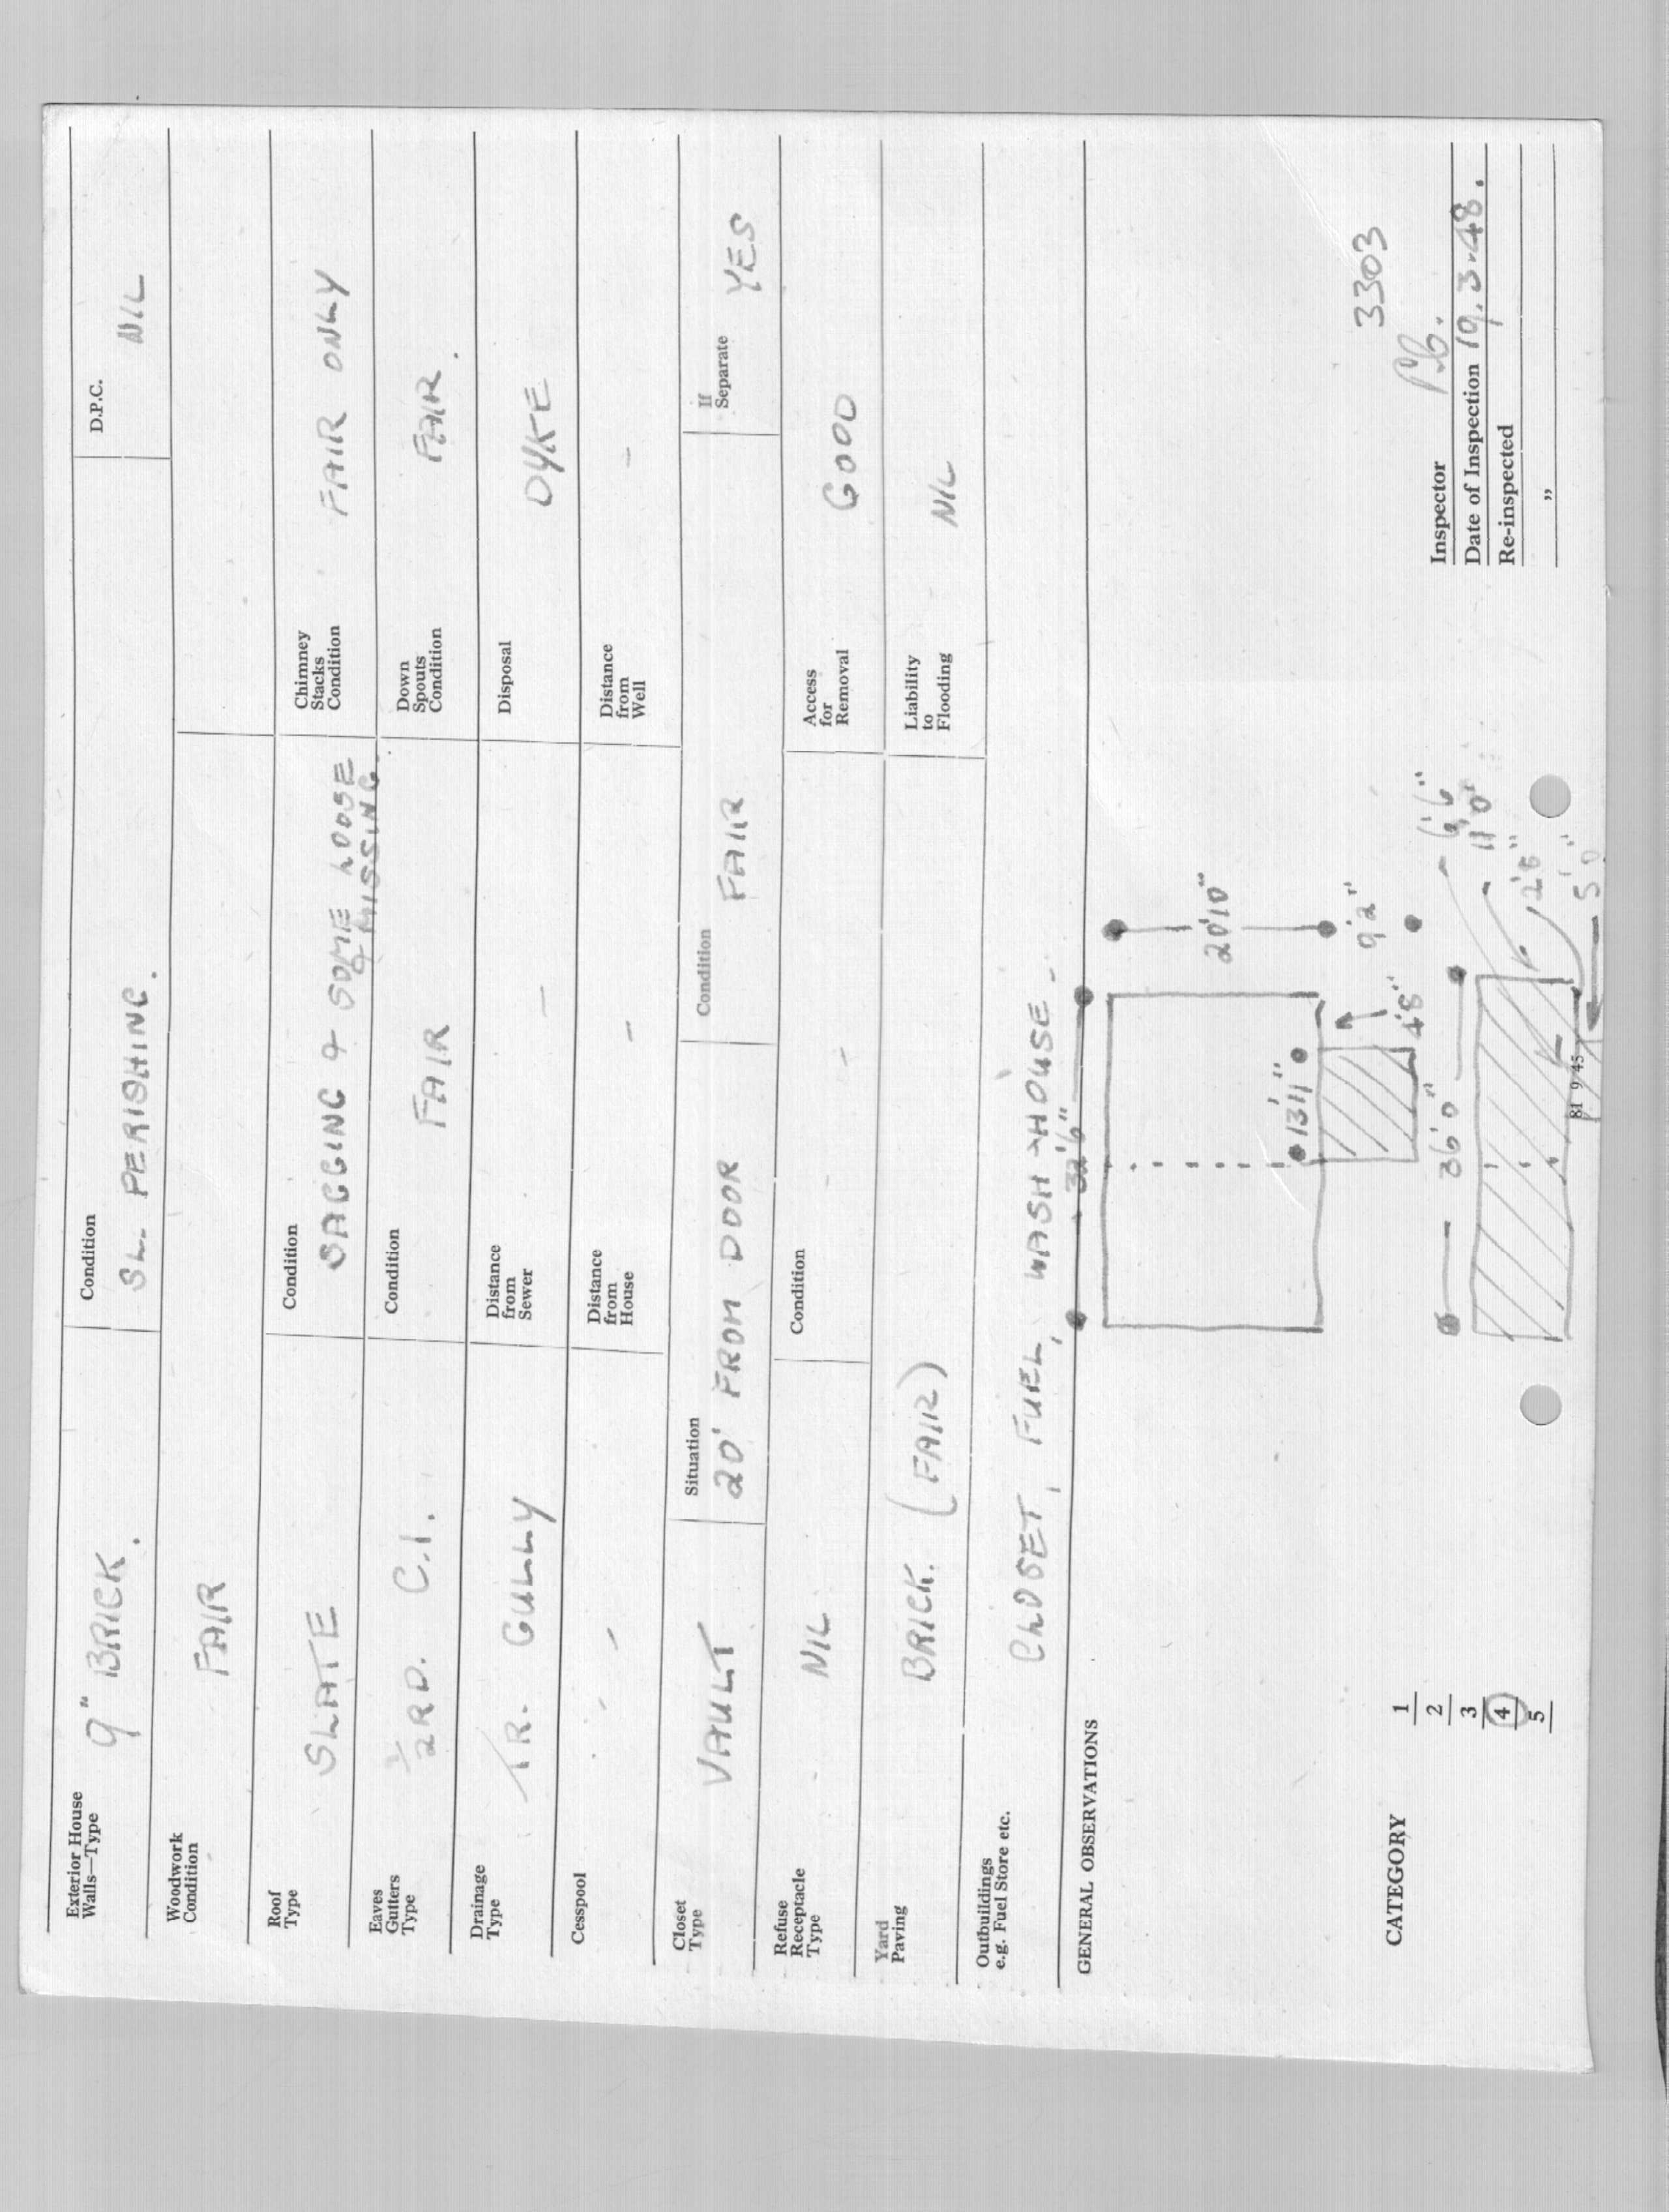 Exterior House Walls—Type 9" BRICK. Condition SL. PERISHING. D.P.C. NIL
Woodwork Condition FAIR
Roof Type SLATE Condition SAGGING & SOME LOOSE & MISSING. Chimney Stacks Condition FAIR ONLY
Eaves Gutters Type ½ RD. C.I. Condition FAIR Down Spouts Condition FAIR.
Drainage Type TR. GULLY Distance from Sewer - Disposal DYKE
Cesspool - Distance from House - Distance from Well -
Closet Type VAULT Situation 20' FROM DOOR Condition FAIR If Separate YES
Refuse Receptacle Type NIL Condition - Access for Removal GOOD
Yard Paving BRICK. (FAIR) Liability to Flooding NIL
Outbuildings e.g. Fuel Store etc. CLOSET, FUEL, WASH-HOUSE.
GENERAL OBSERVATIONS
32'6"
20'10"
13'11"
9'2"
4'8"
36'0"
6'6"
11'0"
2'8"
3303
CATEGORY
1
2
3
4
5
Inspector
Date of Inspection 19.3.48.
Re-inspected
"
81 9 45